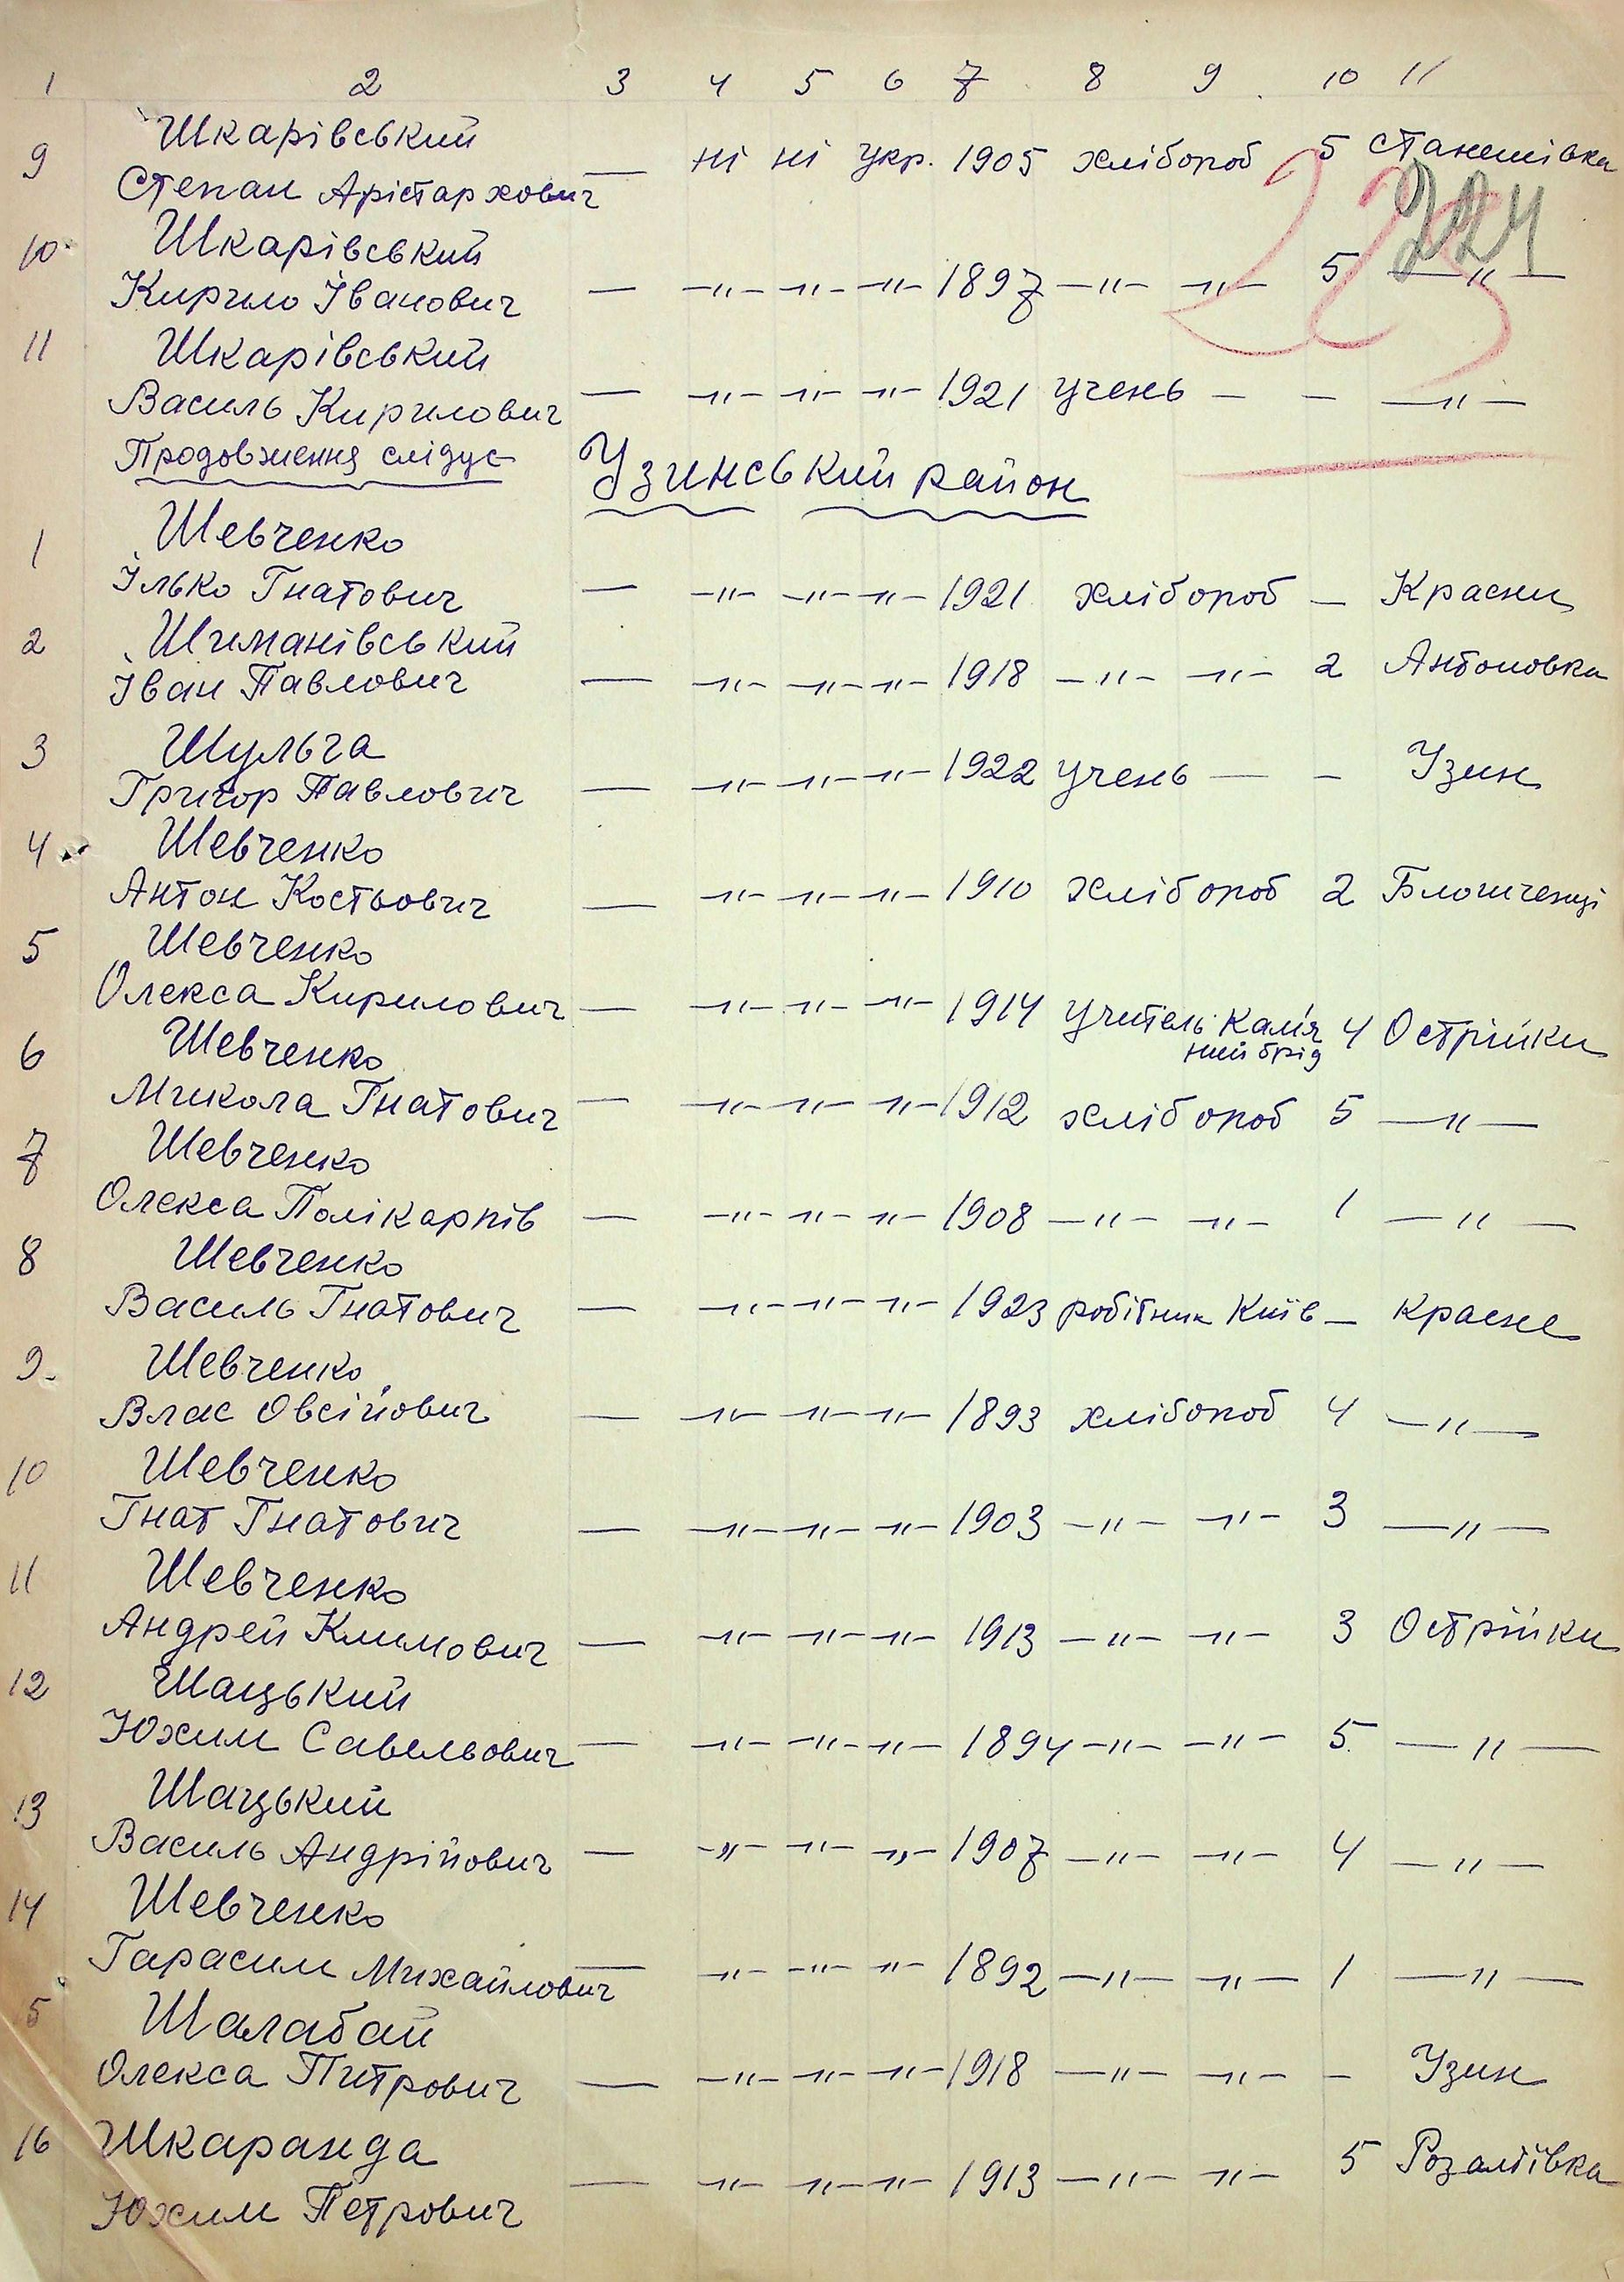 1 2 3 4 5 6 7 8 9 10 11
9 Шкарівський
Степан Арістархович — ні ні укр. 1905 хлібороб 5 Станешівка
223 224
10 Шкарівський
Кирило Іванович — —"— —"— —"— 1897 —"— —"— 5 —"—
11 Шкарівський
Василь Кирилович — —"— —"— —"— 1921 учень — — —"—
Продовження слідує
Узинський район
1 Шевченко
Ілько Гнатович — —"— —"— —"— 1921 хлібороб — Красни
2 Шиманівський
Іван Павлович — —"— —"— —"— 1918 —"— —"— 2 Антоновка
3 Шульга
Григор Павлович — —"— —"— —"— 1922 учень — — Узин
4 Шевченко
Антон Костьович — —"— —"— —"— 1910 хлібороб 2 Блошченці
5 Шевченко
Олекса Кирилович — —"— —"— —"— 1914 учитель Кам'я 4 Острійки
ний брід
6 Шевченко
Микола Гнатович — —"— —"— —"— 1912 хлібороб 5 —"—
7 Шевченко
Олекса Полікарпів — —"— —"— —"— 1908 —"— —"— 1 —"—
8 Шевченко
Василь Гнатович — —"— —"— —"— 1923 робітник Київ — Красне
9 Шевченко
Влас Овсійович — —"— —"— —"— 1893 хлібороб 4 —"—
10 Шевченко
Гнат Гнатович — —"— —"— —"— 1903 —"— —"— 3 —"—
11 Шевченко
Андрей Климович — —"— —"— —"— 1913 —"— —"— 3 Острійки
12 Шацький
Юхим Савельович — —"— —"— —"— 1894 —"— —"— 5 —"—
13 Шацький
Василь Андрійович — —"— —"— —"— 1907 —"— —"— 4 —"—
14 Шевченко
Гарасим Михайлович — —"— —"— —"— 1892 —"— —"— 1 —"—
5 Шалабай
Олекса Питрович — —"— —"— —"— 1918 —"— —"— — Узин
16 Шкаранда
Юхим Петрович — —"— —"— —"— 1913 —"— —"— 5 Розаліївка